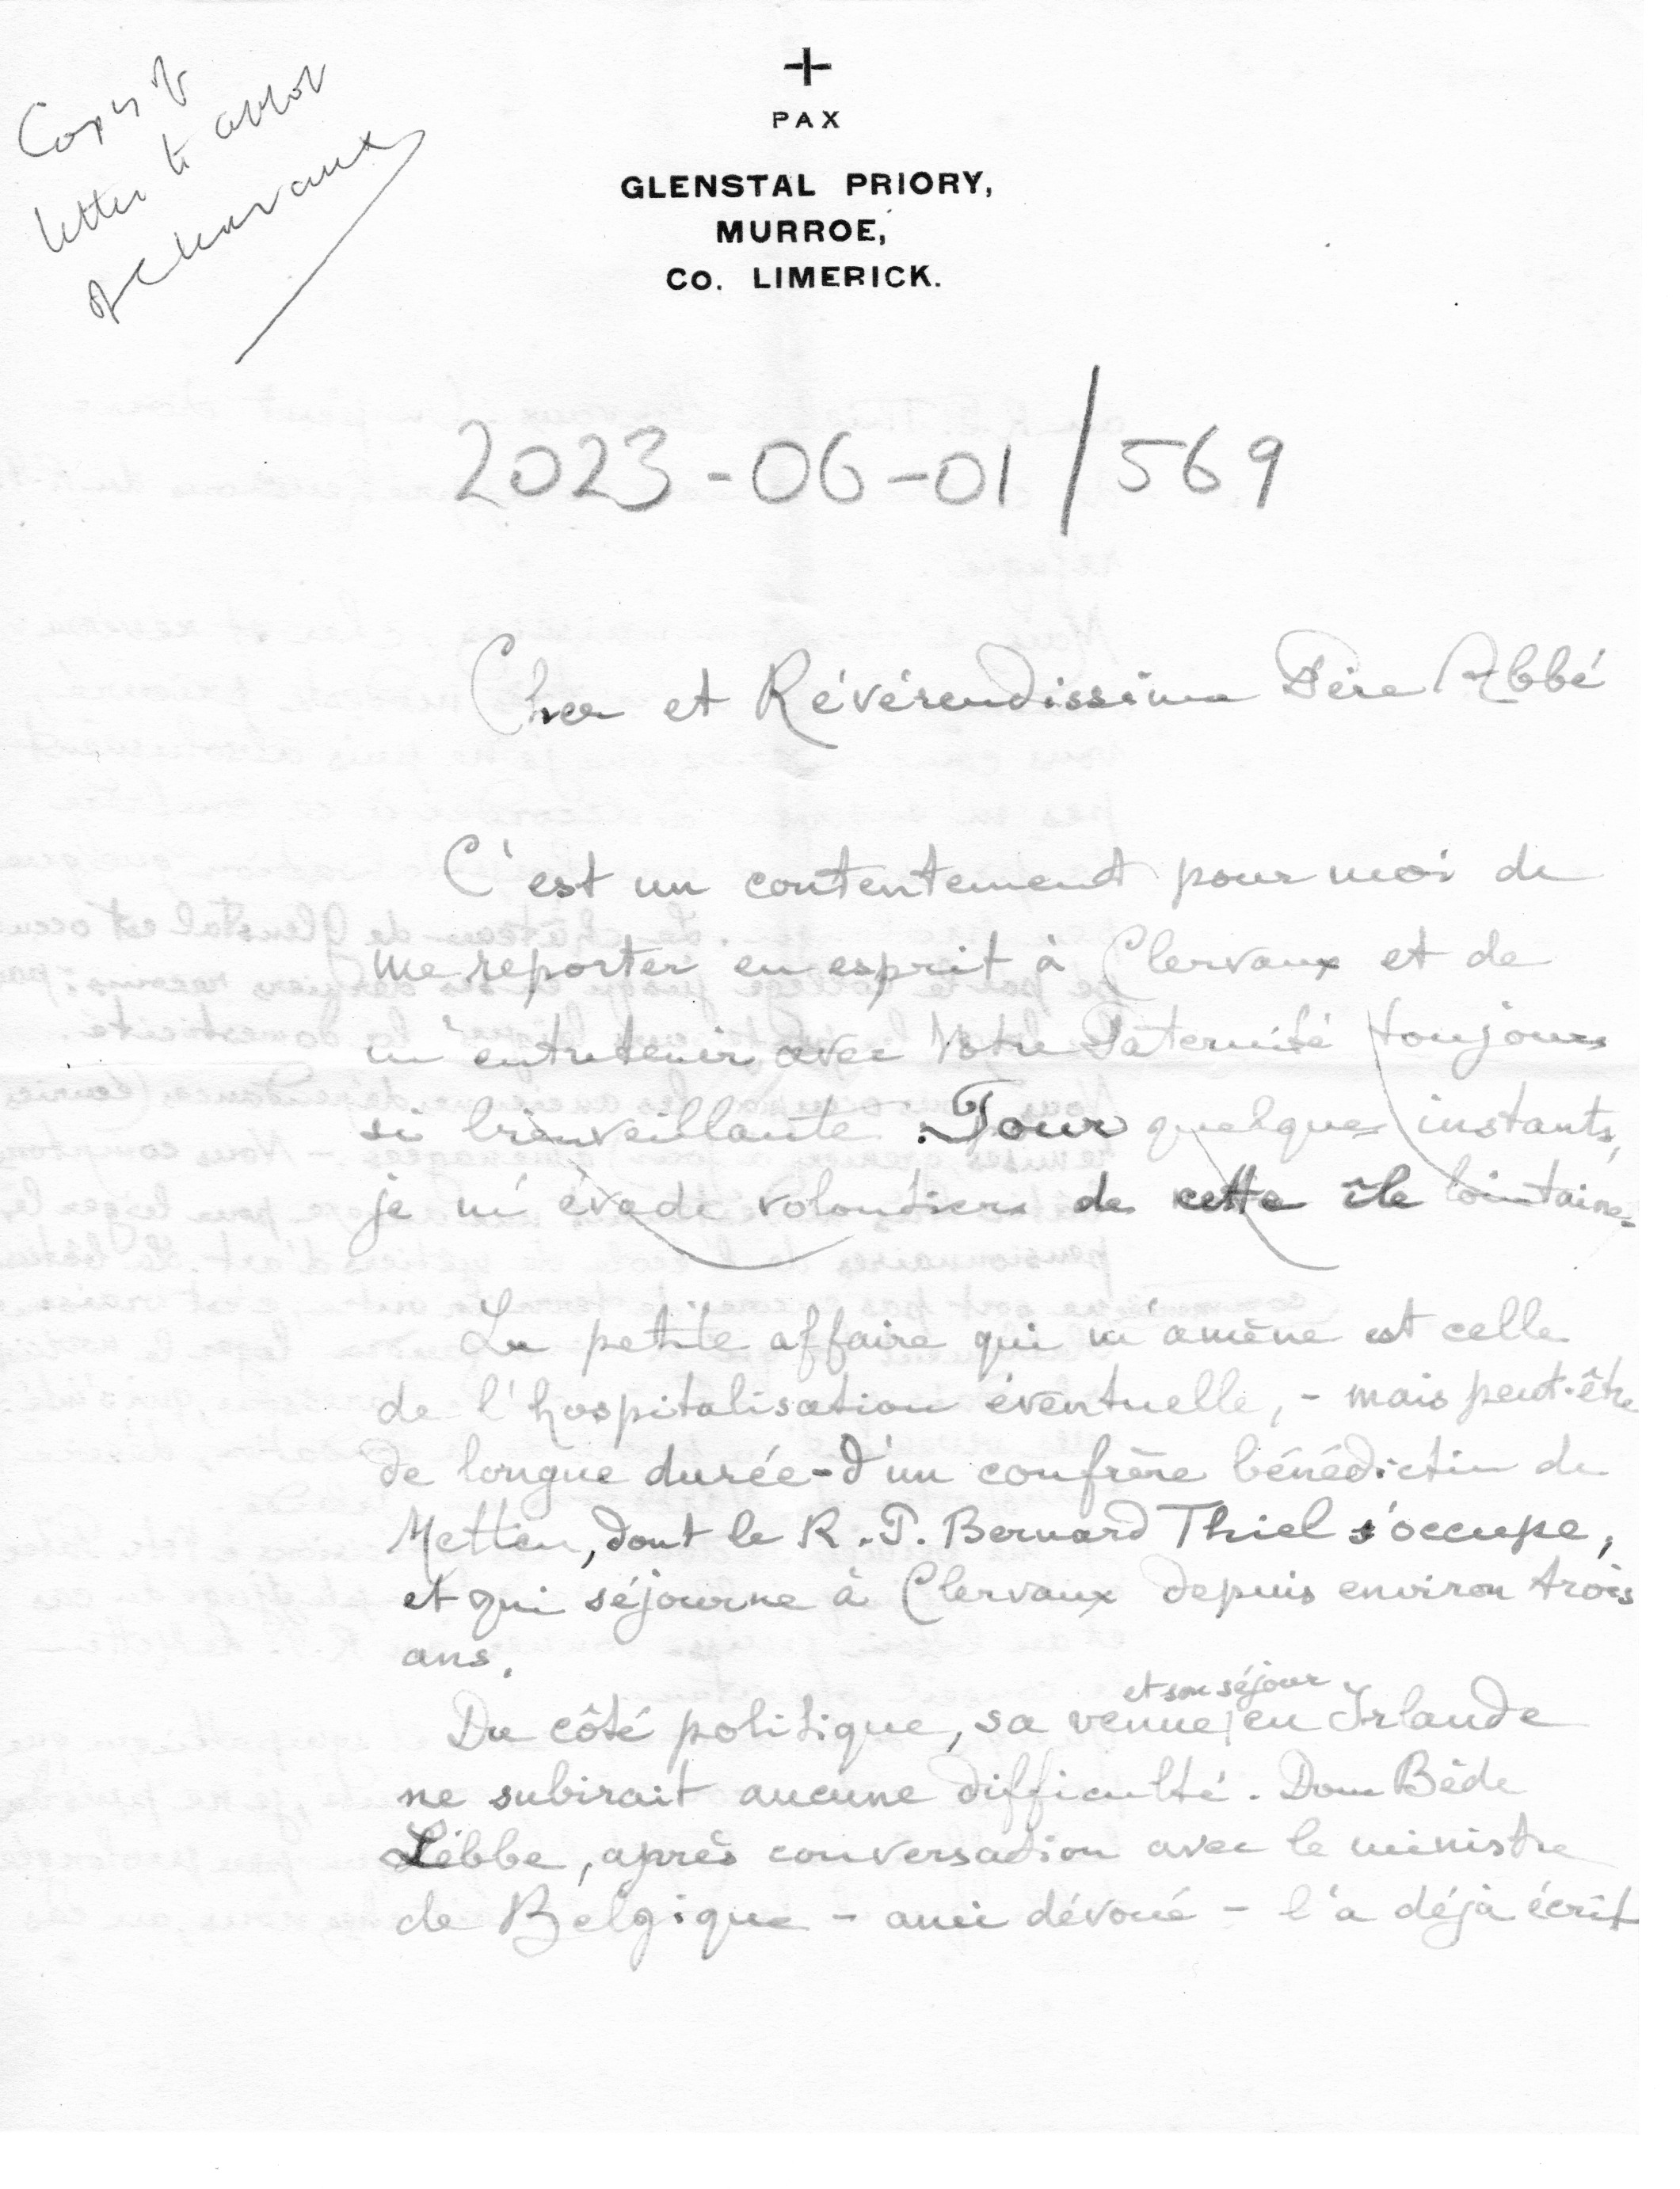 Copy of
letter to abbot
of Clearvaux
+
PAX
GLENSTAL PRIORY,
MURROE,
Co. LIMERICK.
2023-06-01/569
Cher et Révérendissime Père Abbé
C'est un contentement pour moi de
me reporter en esprit à Clervaux et de
m'entretenir avec Votre Paternité toujours
si bienveillante. Pour quelques instants,
je m'évade volontiers de cette île lointaine.
La petite affaire qui m'amène est celle
de l'hospitalisation éventuelle, - mais peut-être
de longue durée - d'un confrère bénédictin de
Metten, dont le R. P. Bernard Thiel s'occupe,
et qui séjourne à Clervaux depuis environ trois
ans.
et son séjour
Du côté politique, sa venue en Irlande
ne subirait aucune difficulté. Dom Bède
Lebbe, après conversation avec le ministre
de Belgique - ami dévoué - l'a déjà écrit